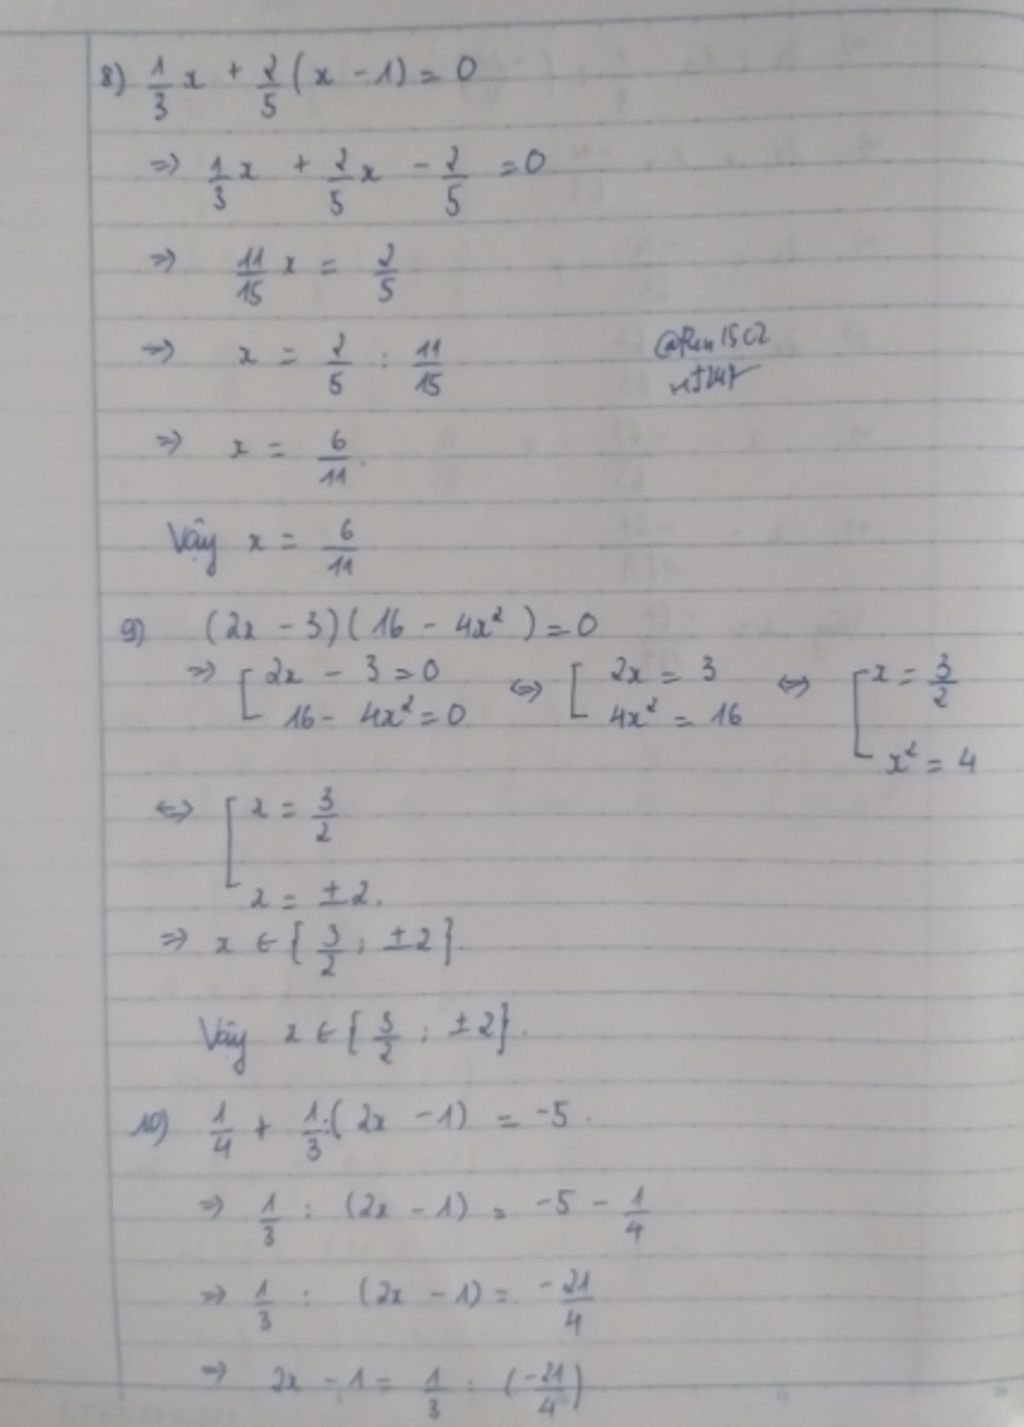 8) 1/3 x + 2/5 (x - 1) = 0
=> 1/3 x + 2/5 x - 2/5 = 0
=> 11/15 x = 2/5
=> x = 2/5 : 11/15
=> x = 6/11.
Vậy x = 6/11
9) (2x - 3)(16 - 4x²) = 0
=> [ 2x - 3 = 0 <=> [ 2x = 3 <=> [ x = 3/2
16 - 4x² = 0 4x² = 16 x² = 4
<=> [ x = 3/2
x = ±2.
=> x ∈ { 3/2 ; ±2 }.
Vậy x ∈ { 3/2 ; ±2 }.
10) 1/4 + 1/3 : (2x - 1) = -5.
=> 1/3 : (2x - 1) = -5 - 1/4
=> 1/3 : (2x - 1) = -21/4
=> 2x - 1 = 1/3 : (-21/4)